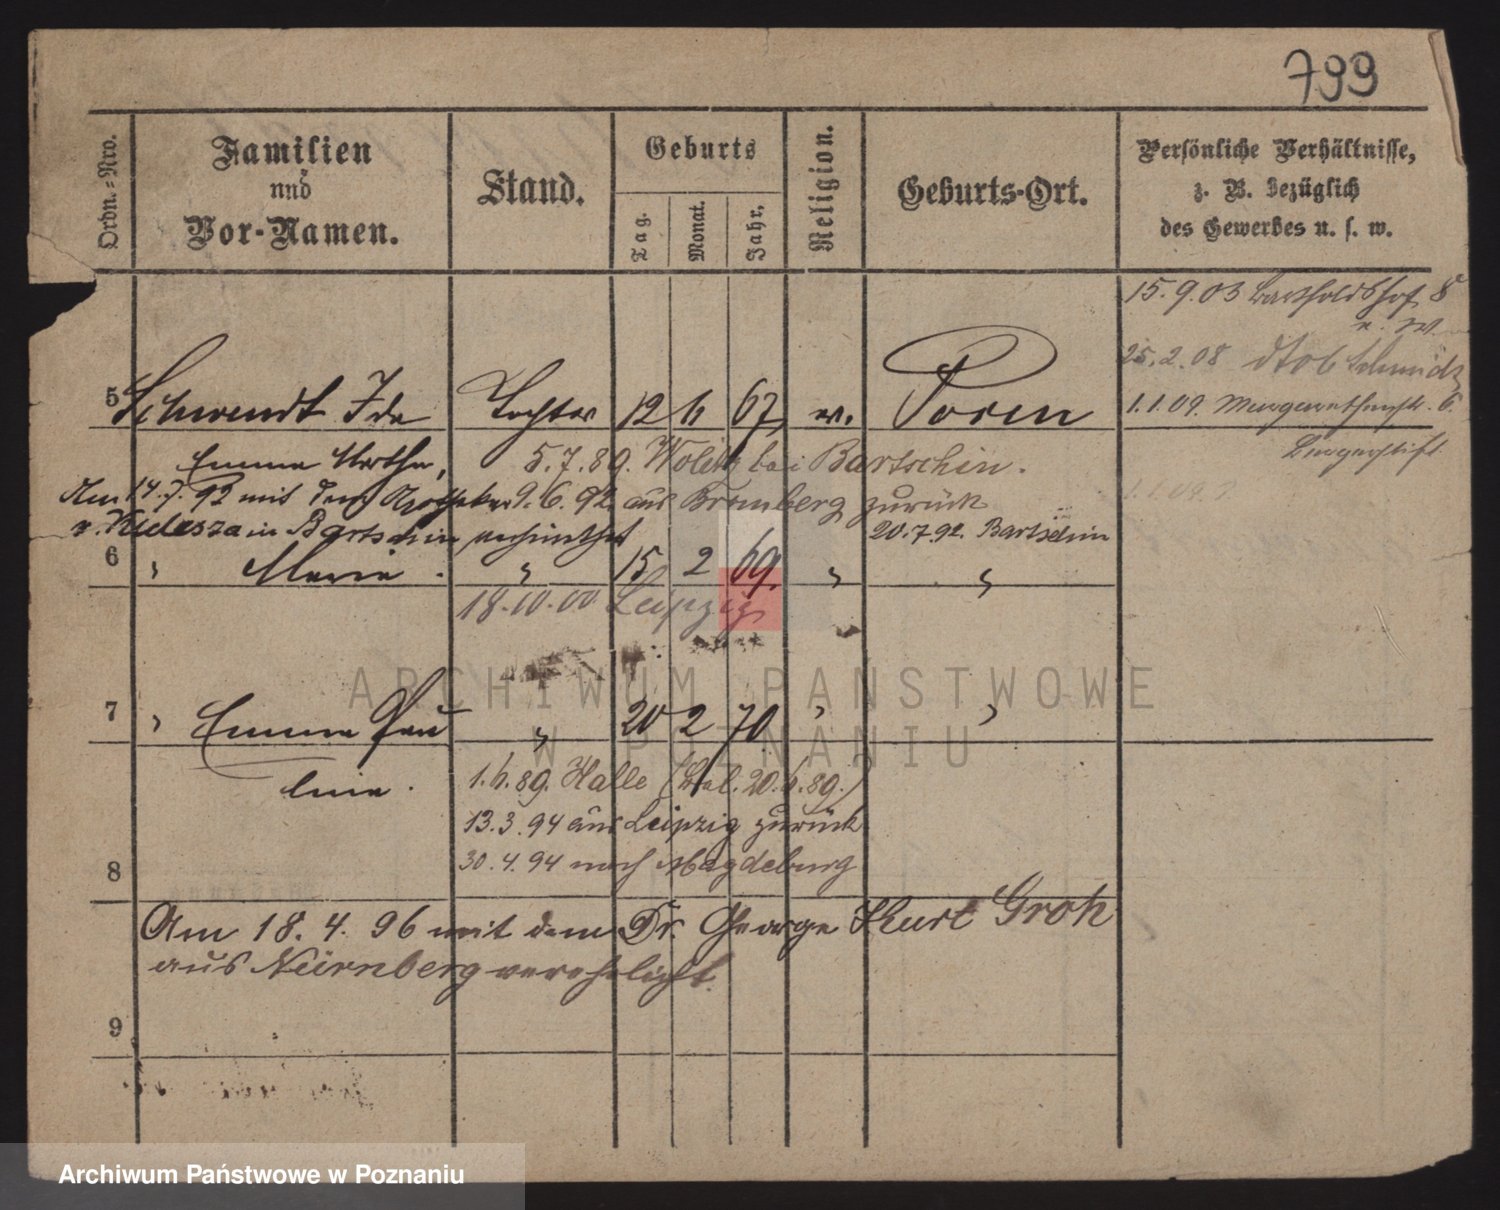 799
Ordn.-Nro.
Familien
und
Vor-Namen.
Stand.
Geburts
Tag.
Monat.
Jahr.
Religion.
Geburts-Ort.
Persönliche Verhältnisse,
z. B. bezüglich
des Gewerbes u. s. w.
15.9.03 Bartholdshof 8
25.2.08
1.1.09. Margarethenstr. 6.
5 Schwendt Ida Tochter 12 6 67 ev. Posen
Emma Martha, 5.7.89. bei Bartschin.
Am 14.7.92 mit dem Apotheker 9.6.92 aus Bromberg zurück
v. in Bartschin 20.7.92. Bartschin
6 " Marie . " 15 2 69. " "
18.10.00 Leipzig
7 " Emma Pau " 20 2 70 " "
line .
1.6.89. Halle 20.6.89.)
13.3.94 aus Leipzig zurück
30.4.94 nach Magdeburg
8
Am 18.4.96 mit dem Dr. George Kurt Groh
aus Nürnberg verehelicht.
9
ARCHIWUM PAŃSTWOWE
W POZNANIU
Archiwum Państwowe w Poznaniu